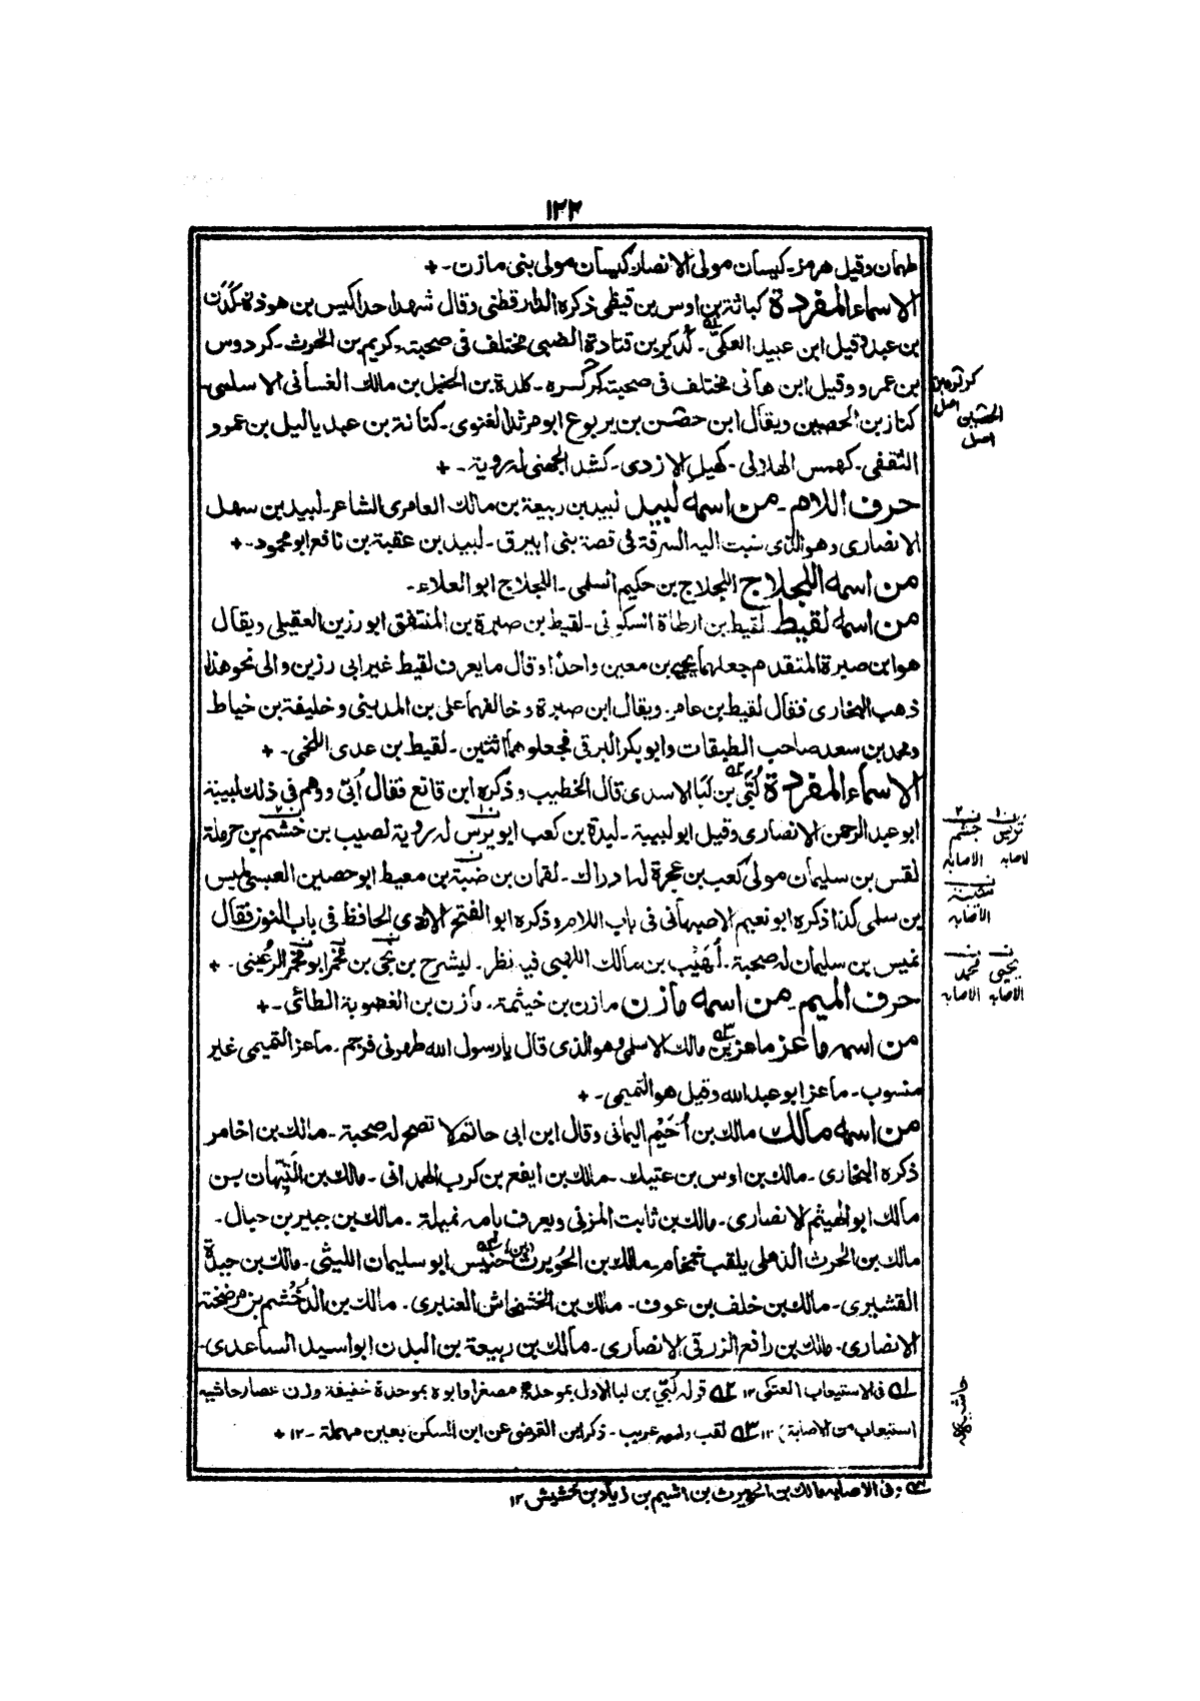 ١٢٢
طهمان وقيل هرمز۔ كيسان مولى الانصار كيسان مولى بنى مازن۔+
الاسماء المفردة كباثة بن اوس بن قيظى ذكره الدارقطنى وقال شهد احدا كيس بن هوذة كدن
بن عبد وقيل ابن عبيد العكى۔ كدير بن قتادة الضبى مختلف فى صحبته۔ كريم بن الحرث۔ كردوس
بن عمرو وقيل ابن هانى مختلف فى صحبته كركسره۔ كلدة بن الحنبل بن مالك الغسانى الاسلمى۔
كناز بن الحصين ويقال ابن حصن بن يربوع ابو مرثد الغنوى۔ كنانة بن عبد ياليل بن عمرو
الثقفى۔ كهمس الهلالى۔ كهيل الازدى۔ كشد الجهنى له روية۔+
حرف اللام۔ من اسمه لبيد لبيد بن ربيعة بن مالك العامرى الشاعر۔ لبيد بن سهل
الانصارى وهو الذى نسبت اليه السرقة فى قصة بنى ابيرق۔ لبيد بن عقبة بن نافع ابو محمود۔+
من اسمه اللجلاج اللجلاج بن حكيم السلمى۔ اللجلاج ابو العلاء۔
من اسمه لقيط لقيط بن ارطاة السكونى۔ لقيط بن صبرة بن المنتفق ابو رزين العقيلى ويقال
هو ابن صبرة المتقدم جعلهما يحيى بن معين واحدا وقال ما يعرف لقيط غير ابى رزين والى نحو هذا
ذهب البخارى فقال لقيط بن عامر۔ ويقال ابن صبرة وخالفهما على بن المدينى وخليفة بن خياط
ومحمد بن سعد صاحب الطبقات وابو بكر البرقى فجعلوهما اثنين۔ لقيط بن عدى اللخمى۔+
الاسماء المفردة لُبَّى بن لبا الاسدى قال الخطيب وذكره ابن قانع فقال أُبى ووهم فى ذلك لبيبة
ابو عبد الرحمن الانصارى وقيل ابو لبيبة۔ ليدة بن كعب ابو يرس له روية لصيب بن خشم بن حرملة
لقس بن سليمان مولى كعب بن عجرة له ادراك۔ لقمان بن ضبة بن معيط ابو حصين العبسى لميس
بن سلمى كذا ذكره ابو نعيم الاصبهانى فى باب اللام وذكره ابو الفتح الازدى الحافظ فى باب النون فقال
نميس بن سليمان له صحبة۔ لُهَيْب بن مالك اللهبى فيه نظر۔ ليشرح بن لحى بن مخمر ابو مخمر الرعينى۔+
حرف الميم۔ من اسمه مازن مازن بن خيثمة۔ مازن بن الغضوبة الطائى۔+
من اسمه ماعز ماعز بن مالك الاسلمى وهو الذى قال يا رسول الله طهرنى فرجم۔ ماعز التميمى غير
منسوب۔ ماعز ابو عبد الله وقيل هو التميمى۔+
من اسمه مالك مالك بن أُخَيْم اليمانى وقال ابن ابى حاتم لا تصح له صحبة۔ مالك بن اخامر
ذكره البخارى۔ مالك بن اوس بن عتيك۔ مالك بن ايفع بن كرب الهمدانى۔ مالك بن التيهان بن
مالك ابو الهيثم الانصارى۔ مالك بن ثابت المزنى ويعرف بامه نميلة۔ مالك بن جبير بن حبال۔
مالك بن الحرث الذهلى يلقب خمخام۔ مالك بن الحويرث (بن) حشيس ابو سليمان الليثى۔ مالك بن حيدة
القشيرى۔ مالك بن خلف بن عوف۔ مالك بن الخشخاش العنبرى۔ مالك بن الدخشم بن مرضخة
الانصارى۔ مالك بن رافع الزرقى الانصارى۔ مالك بن ربيعة بن البدن ابو اسيد الساعدى۔
كركره بن
اصل
الحنبل
اصل
تريس
الاصابه
خشم
الاصابه
الاصابه
يحيى
الاصابه
محمد
الاصابه
حاشيه
١ فى الاستيعاب العتكى ١٢ ٢ قوله لُبَّى بن لبا الاول بموحدة مصغرا وابوه بموحدة خفيفة وزن عصا (حاشيه
استيعاب من الاصابة) ١٢ ٣ لقب واسمه عريب۔ ذكر ابن الفرضى عن ابن السكن بعين مهملة۔١٢+
٤ وفى الاصابه مالك بن الحويرث بن اشيم بن زياد بن خشيش ١٢